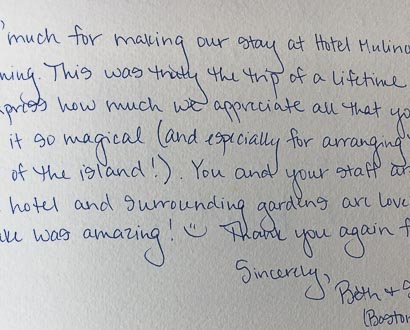 much for making our stay at Hotel Mulino
ning. This was truly the trip of a lifetime
press how much we appriciate all that yo
it so magical (and especially for arranging
of the island!). You and your staff ar
hotel and surrounding gardens are love
was amazing! Thank you again f
Sincerely,
Beth +
(Bosto